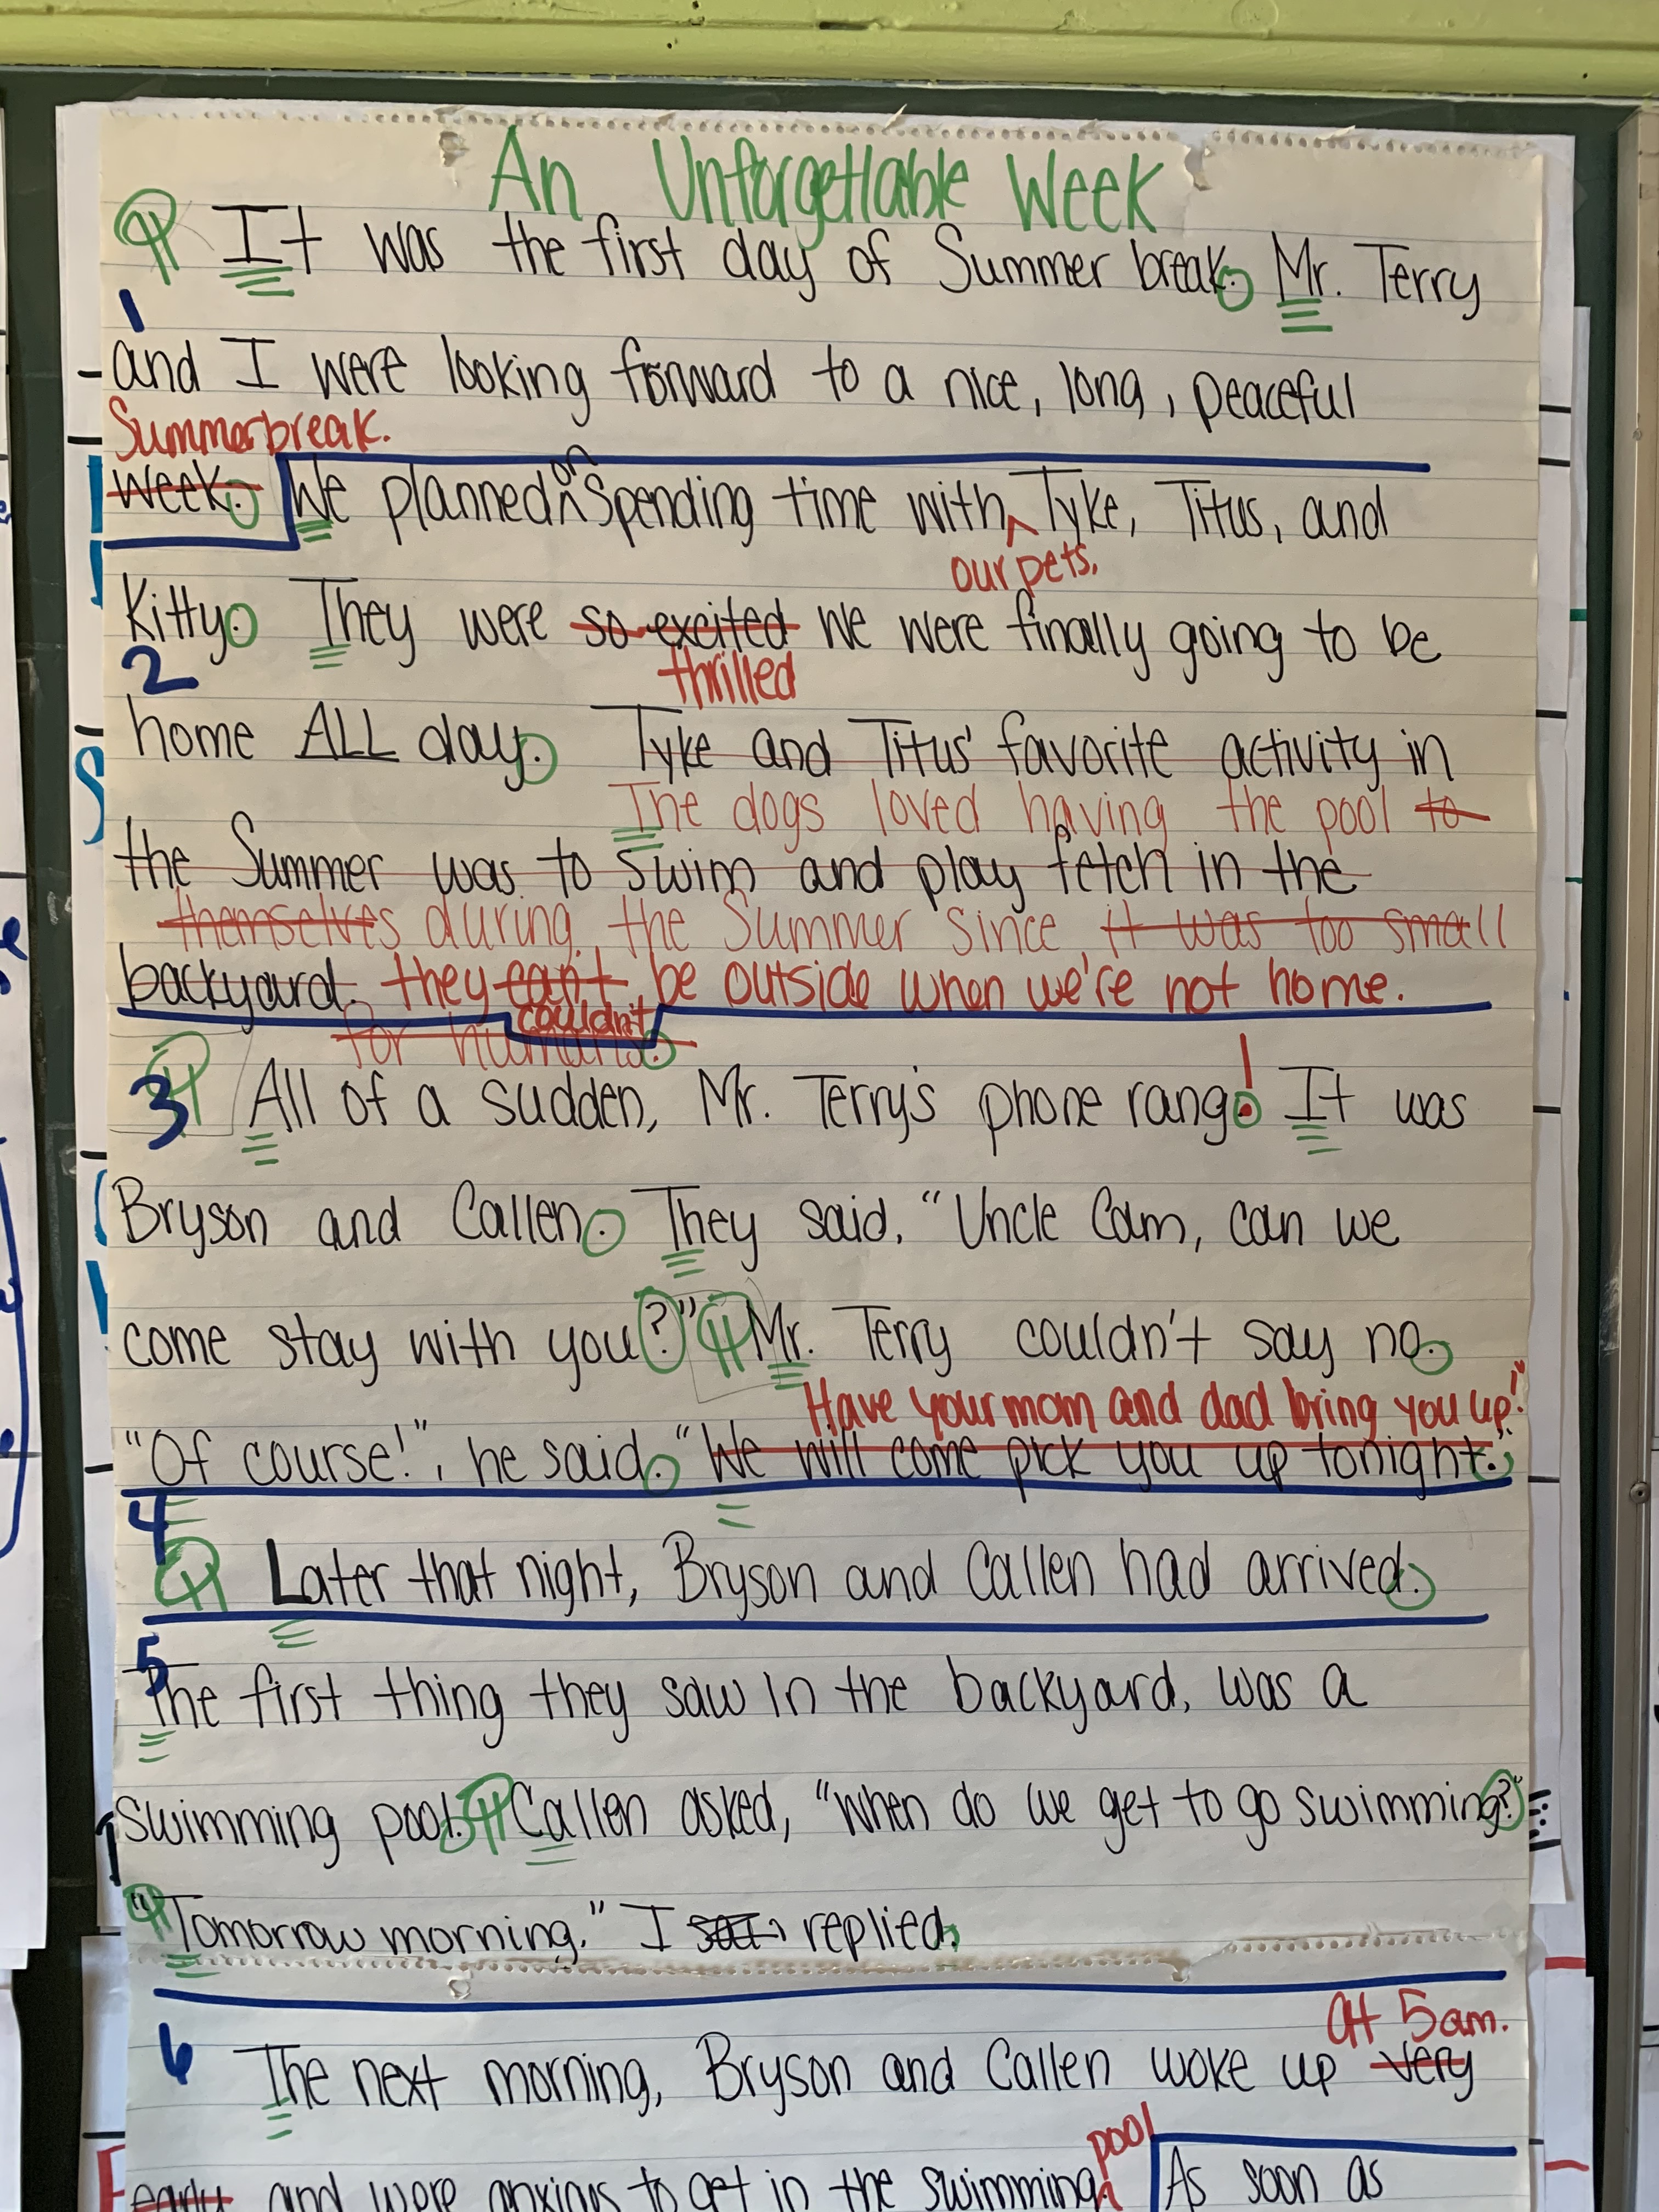 An Unforgettable Week
¶ It was the first day of Summer break. Mr. Terry
1
and I were looking forward to a nice, long, peaceful
Summer break.
week. We planned on spending time with Tyke, Titus, and
our pets,
Kitty. They were so excited we were finally going to be
2
thrilled
home ALL day. Tyke and Titus' favorite activity in
The dogs loved having the pool to
the Summer was to swim and play fetch in the
themselves during the Summer since it was too small
backyard. they can't be outside when we're not home.
couldn't
for humans.
3 ¶ All of a sudden, Mr. Terry's phone rang! It was
Bryson and Callen. They said, "Uncle Cam, can we
come stay with you?" ¶ Mr. Terry couldn't say no.
Have your mom and dad bring you up!"
"Of course!", he said. "We will come pick you up tonight."
4
¶ Later that night, Bryson and Callen had arrived.
5
The first thing they saw in the backyard, was a
swimming pool. ¶ Callen asked, "When do we get to go swimming?"
¶ "Tomorrow morning." I replied.
At 5am.
6 The next morning, Bryson and Callen woke up very
pool
early and were anxious to get in the swimming As soon as